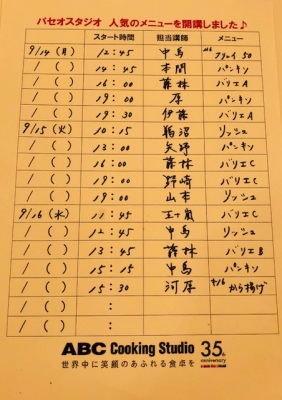 パセオスタジオ 人気のメニューを開講しました♪
スタート時間 担当講師 メニュー
9/14 (月) 12:45 中馬
/ ( ) 14:00 本間 パンキソ
/ ( ) 16:00 藤林 バリエA
/ ( ) 19:00 原 パンキソ
/ ( ) 19:30 伊藤 バリエA
9/15 (火) 10:15 鞆沼 リッシュ
/ ( ) 13:00 矢野 パンキソ
/ ( ) 16:00 藤林 バリエC
/ ( ) 19:00 野崎 バリエC
/ ( ) 19:00 山本 リッシュ
9/16 (水) 11:45 五十嵐 バリエC
/ ( ) 12:45 中馬 リッシュ
/ ( ) 13:45 藤林 バリエB
/ ( ) 15:15 中馬 パンキソ
/ ( ) 15:30 河原 から揚げ
/ ( ) :
/ ( ) :
ABC Cooking Studio 35th anniversary
世界中に笑顔のあふれる食卓を